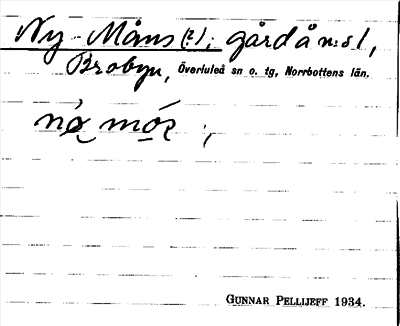 Ny-Måns (?); gård å n:o 1,
Brobyn, Överluleå sn o. tg, Norrbottens län.
GUNNAR PELLIJEFF 1934.